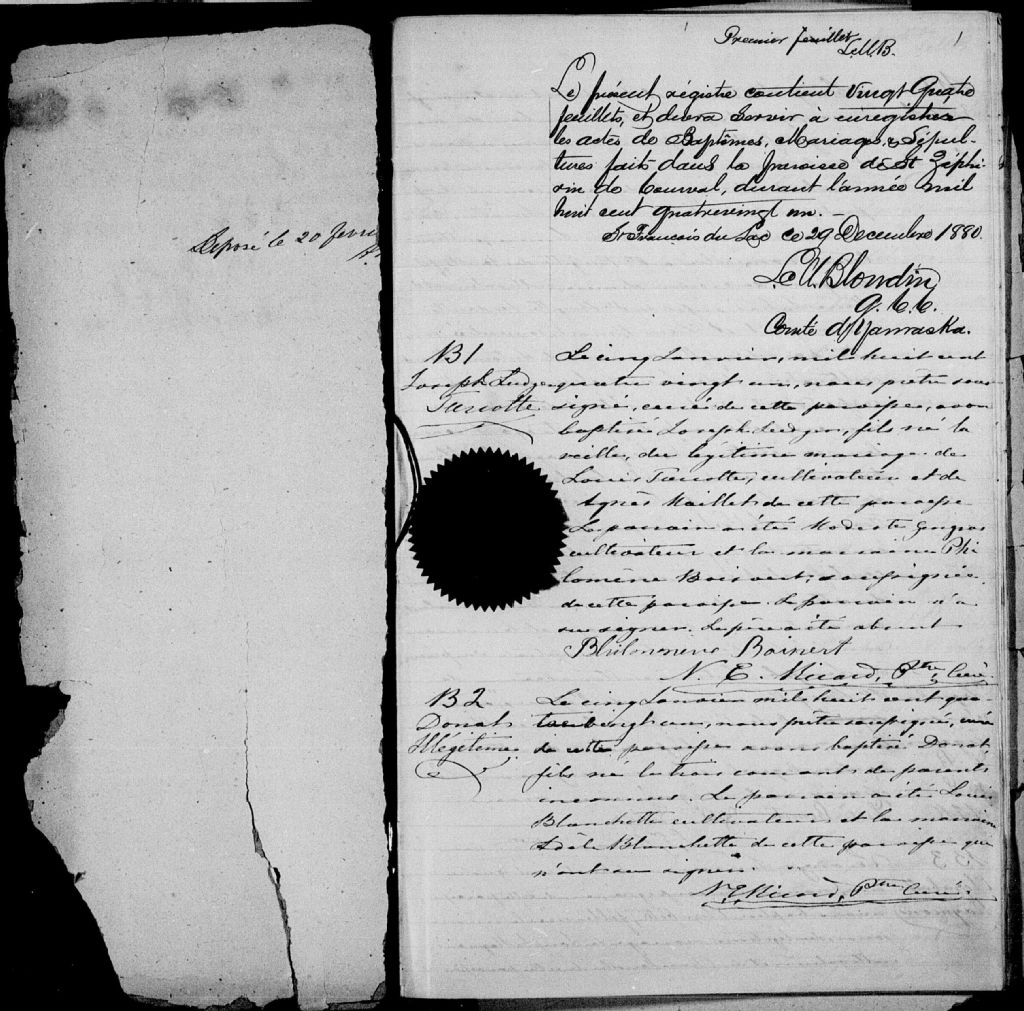 Deposé le 20 fevri
Premier feuillet 1
L.U.B.
Le présent régistre contient Vingt Quatre
feuillets, et devra servir à enregistrer
les actes de Baptêmes, Mariages, & Sépul-
tures faits dans la paroisse de St Zéphi-
rin de Courval, durant l'année mil
huit cent quatrevingt un. –
St Francois du Lac ce 29 Decembre 1880.
L.U. Blondin
G. C. C.
Comté d'Yamaska.
B1
Joseph Ludger
Turcotte
Le cinq Janvier, mil huit cent
quatre vingt un, nous prêtre sous
signé, curé de cette paroisse, avons
baptisé Joseph Ludger, fils né la
veille, du légitime mariage de
Louis Turcotte, cultivateur et de
Agnès Maillet de cette paroisse
Le parrain a été Modeste Gengras
cultivateur et la marraine Phi
lomène Boisvert, soussignée
de cette paroisse. Le parrain n'a
su signer. Le père a été absent
Boisvert
N. E. Ricard, Ptre, Curé.
B2
Donat
Illégitime
Le cinq Janvier mil huit cent qua
tre vingt un, nous prêtre soussigné, curé
de cette paroisse avons baptisé Donat,
fils né le trois courant de parents
inconnus. Le parrain a été Louis
Blanchette cultivateur et la marraine
Adèle Blanchette de cette paroisse qui
n'ont su signer.
N. E. Ricard, Ptre Curé.